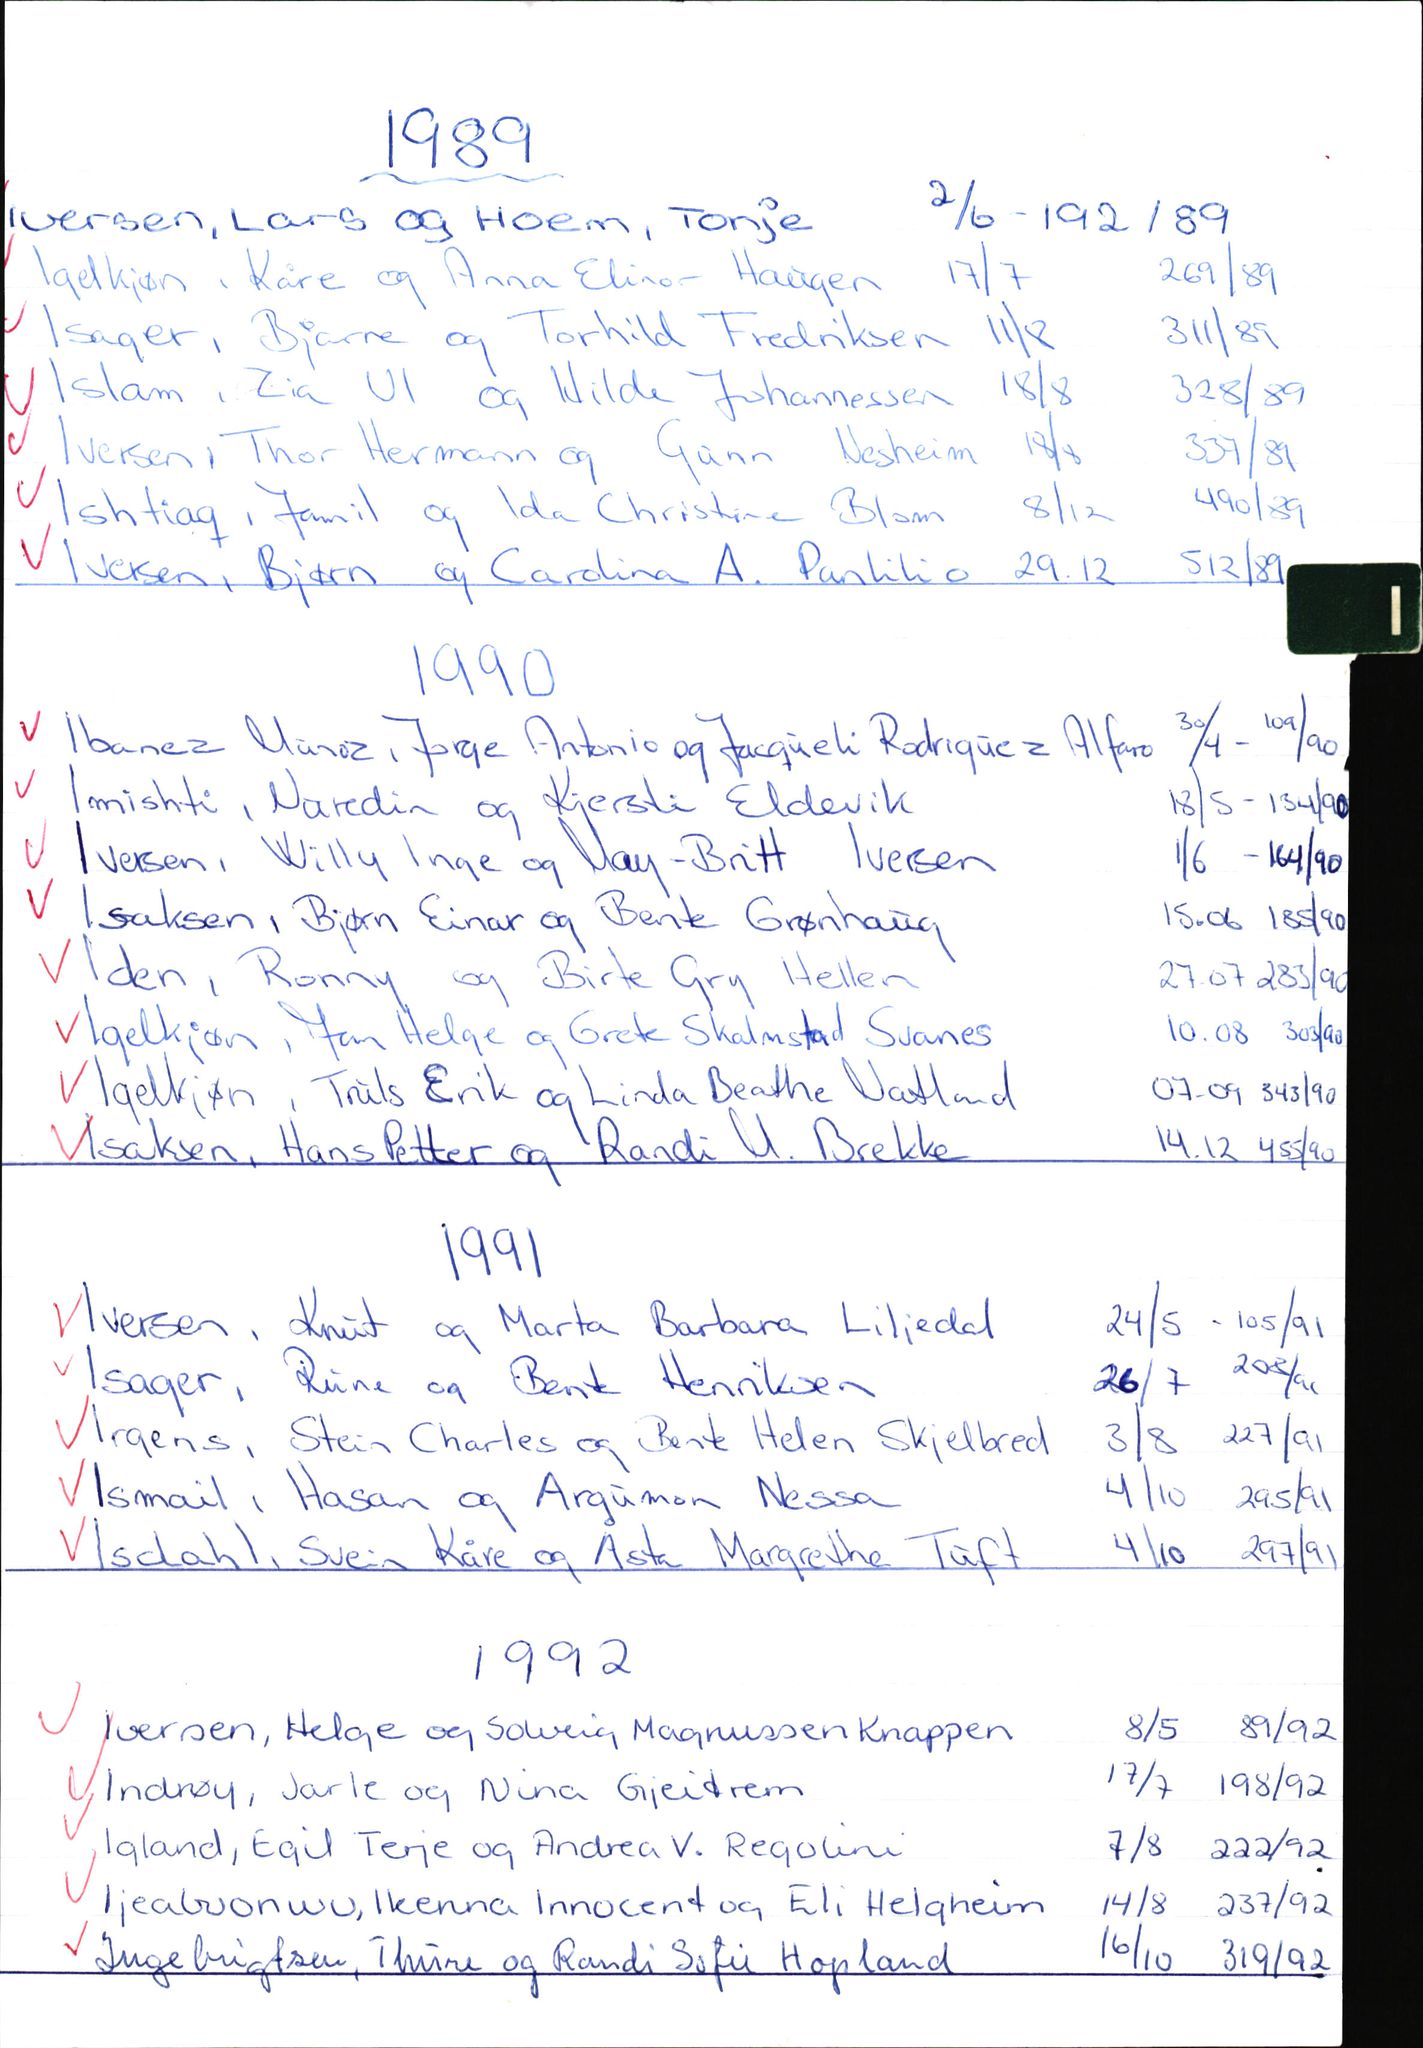 1989
Iversen, Lars og Hoem, Tonje 2/6 - 192 / 89
Igelkjøn, Kåre og Anna Elinor Haugen 17/7 269/89
Isager, Bjarne og Torhild Fredriksen 11/8 311/89
Islam, Zia Ul og Hilde Johannessen 18/8 328/89
Iversen, Thor Hermann og Gunn Nesheim 18/8 337/89
Ishtiaq, Jamil og Ida Christine Blom 8/12 490/89
Iversen, Bjørn og Carolina A. Panlilio 29.12 512/89
I
1990
Ibanez Munoz, Jorge Antonio og Jacqueli Rodriguez Alfaro 30/4 - 109/90
Imishti, Naredin og Kjersti Eldevik 18/5 - 134/90
Iversen, Willy Inge og May-Britt Iversen 1/6 - 164/90
Isaksen, Bjørn Einar og Bente Grønhaug 15.06 185/90
Iden, Ronny og Birte Gry Hellen 27.07 283/90
Igelkjøn, Jan Helge og Grete Skalmstad Svanes 10.08 303/90
Igelkjøn, Truls Erik og Linda Beathe Natland 07.09 343/90
Isaksen, Hans Petter og Randi M. Brekke 14.12 455/90
1991
Iversen, Knut og Marta Barbara Liljedal 24/5 - 105/91
Isager, Rune og Bente Henriksen 26/7 208/91
Irgens, Stein Charles og Bente Helen Skjelbred 3/8 227/91
Ismail, Hasan og Argumon Nessa 4/10 295/91
Isdahl, Svein Kåre og Åsta Margrethe Tuft 4/10 297/91
1992
Iversen, Helge og Solveig Magnussen Knappen 8/5 89/92
Indrøy, Jarle og Nina Gjeitrem 17/7 198/92
Igland, Egil Terje og Andrea V. Regolini 7/8 222/92
Ijeabuonwu, Ikenna Innocent og Eli Helgheim 14/8 237/92
Ingebrigtsen, Thure og Randi Sofie Hopland 16/10 319/92